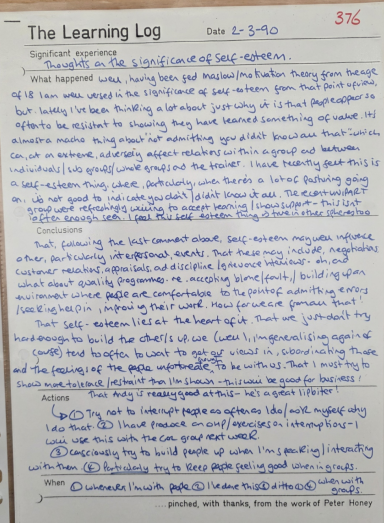 376
The Learning Log Date 2-3-90
Significant experience
Thoughts on the significance of self-esteem.
What happened Well, having been fed Maslow/motivation theory from the age
of 18 I am well versed in the significance of self-esteem from that point of view,
but lately I've been thinking a lot about just why it is that people appear so
often to be resistant to showing they have learned something of value. It's
almost a macho thing about 'not admitting you didn't know all that' which,
can, at an extreme, adversely affect relations within a group and between
individuals/sub groups/whole groups and the trainer. I have recently felt this is
a self-esteem thing, where, particularly, when there's a lot of posturing going
on, it's not good to indicate you don't/didn't know it all. The recent
group were refreshingly willing to accept learning/show support - this isn't
often enough seen. I feel this self esteem thing is true in other spheres too
Conclusions
That, following the last comment above, self-esteem may well influence
other, particularly interpersonal, events. That these may include, negotiations
customer relations, appraisals, and discipline/grievance interviews - oh, and
what about quality programmes - re. accepting blame/fault,/building up an
environment where people are comfortable to the point of admitting errors
/seeking help in improving their work. How far we are from all that!
That self-esteem lies at the heart of it. That we just don't try
hard enough to build the others up, we (well I, I'm generalising again of
course) tend to often to want to get our views in, subordinating those
and the feelings of the people unfortunate enough to be with us. That I must try to
show more tolerance/restraint than I'm shown - this would be good for business!
That Andy is really good at this - he's a great lip biter!
Actions
① Try not to interrupt people as often as I do/ask myself why
I do that. ② I have produce an OHP/exercises on interruptions - I
will use this with the group next week.
③ consciously try to build people up when I'm speaking/interacting
with them ④ Particularly try to keep people feeling good when in groups.
When ① whenever I'm with people ② I've done this ③ ditto ④ when with
groups.
.... pinched, with thanks, from the work of Peter Honey